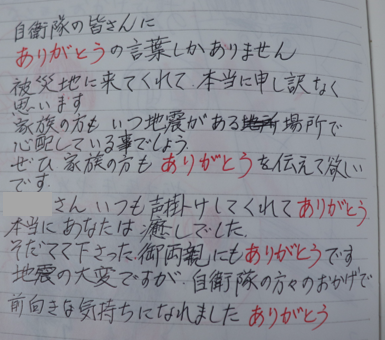 自衛隊の皆さんに
ありがとうの言葉しかありません
被災地に来てくれて 本当に申し訳なく
思います
家族の方も いつ地震がある場所で
心配している事でしょう
ぜひ 家族の方も ありがとうを伝えて欲しい
です。
さん いつも声掛けしてくれて ありがとう
本当に あなたは 癒しでした。
そだてて下さった 御両親にもありがとうです
地震の大変ですが、自衛隊の方々のおかげで
前向きな気持ちになれました ありがとう